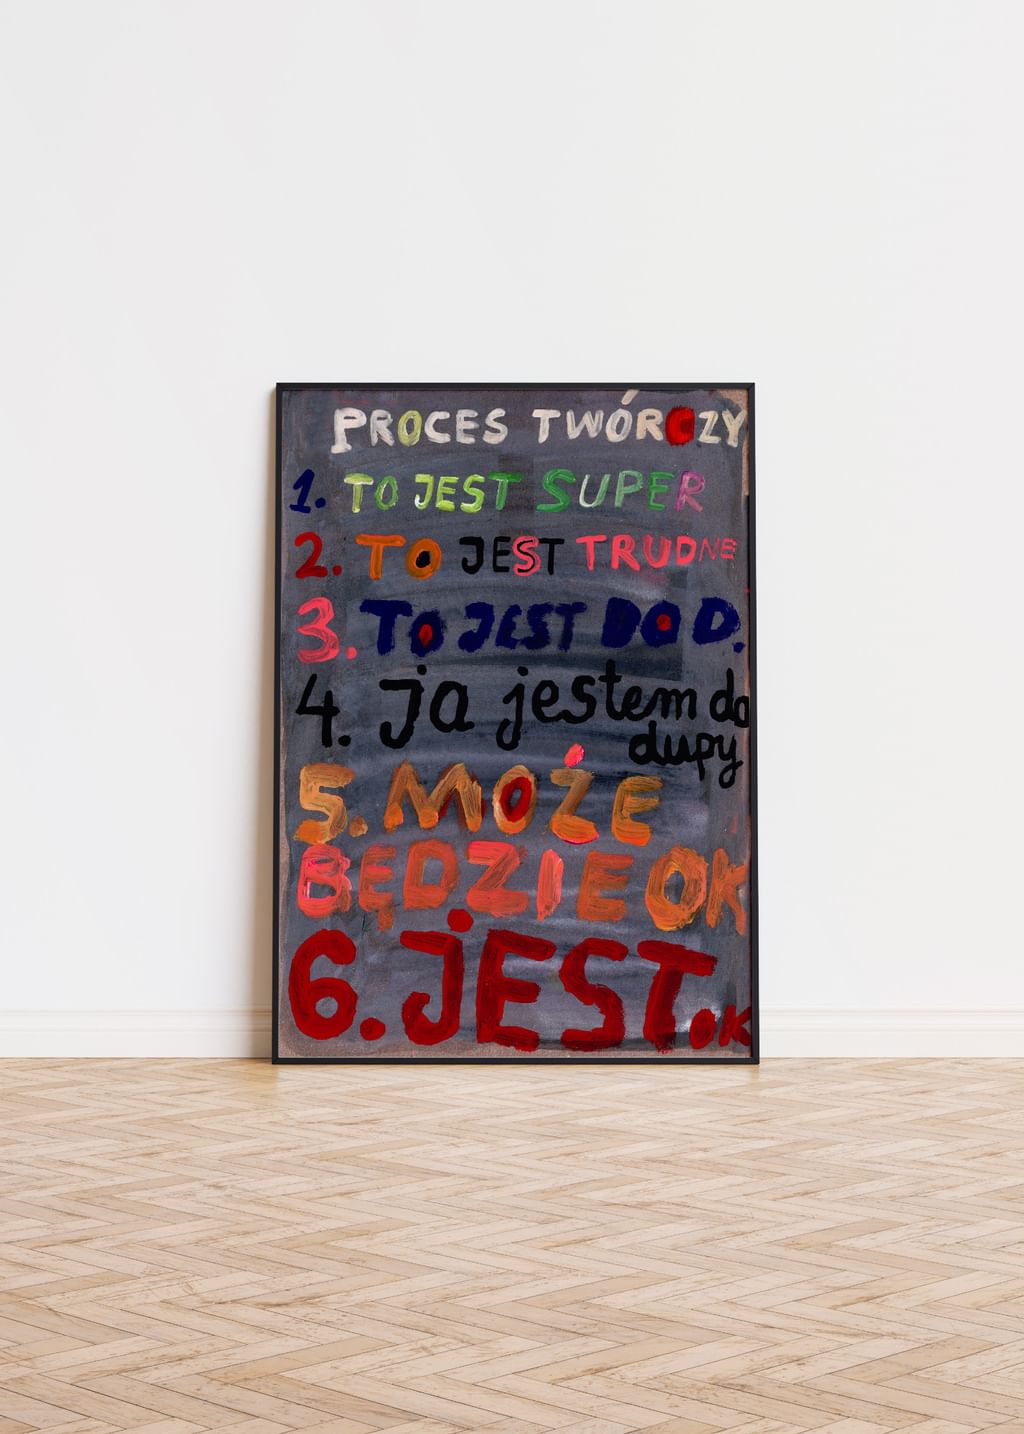 PROCES TWÓRCZY
1. TO JEST SUPER
2. TO JEST TRUDNE
3. TO JEST DO D.
4. ja jestem do
dupy
5. MOŻE
BĘDZIE OK
6. JEST. OK